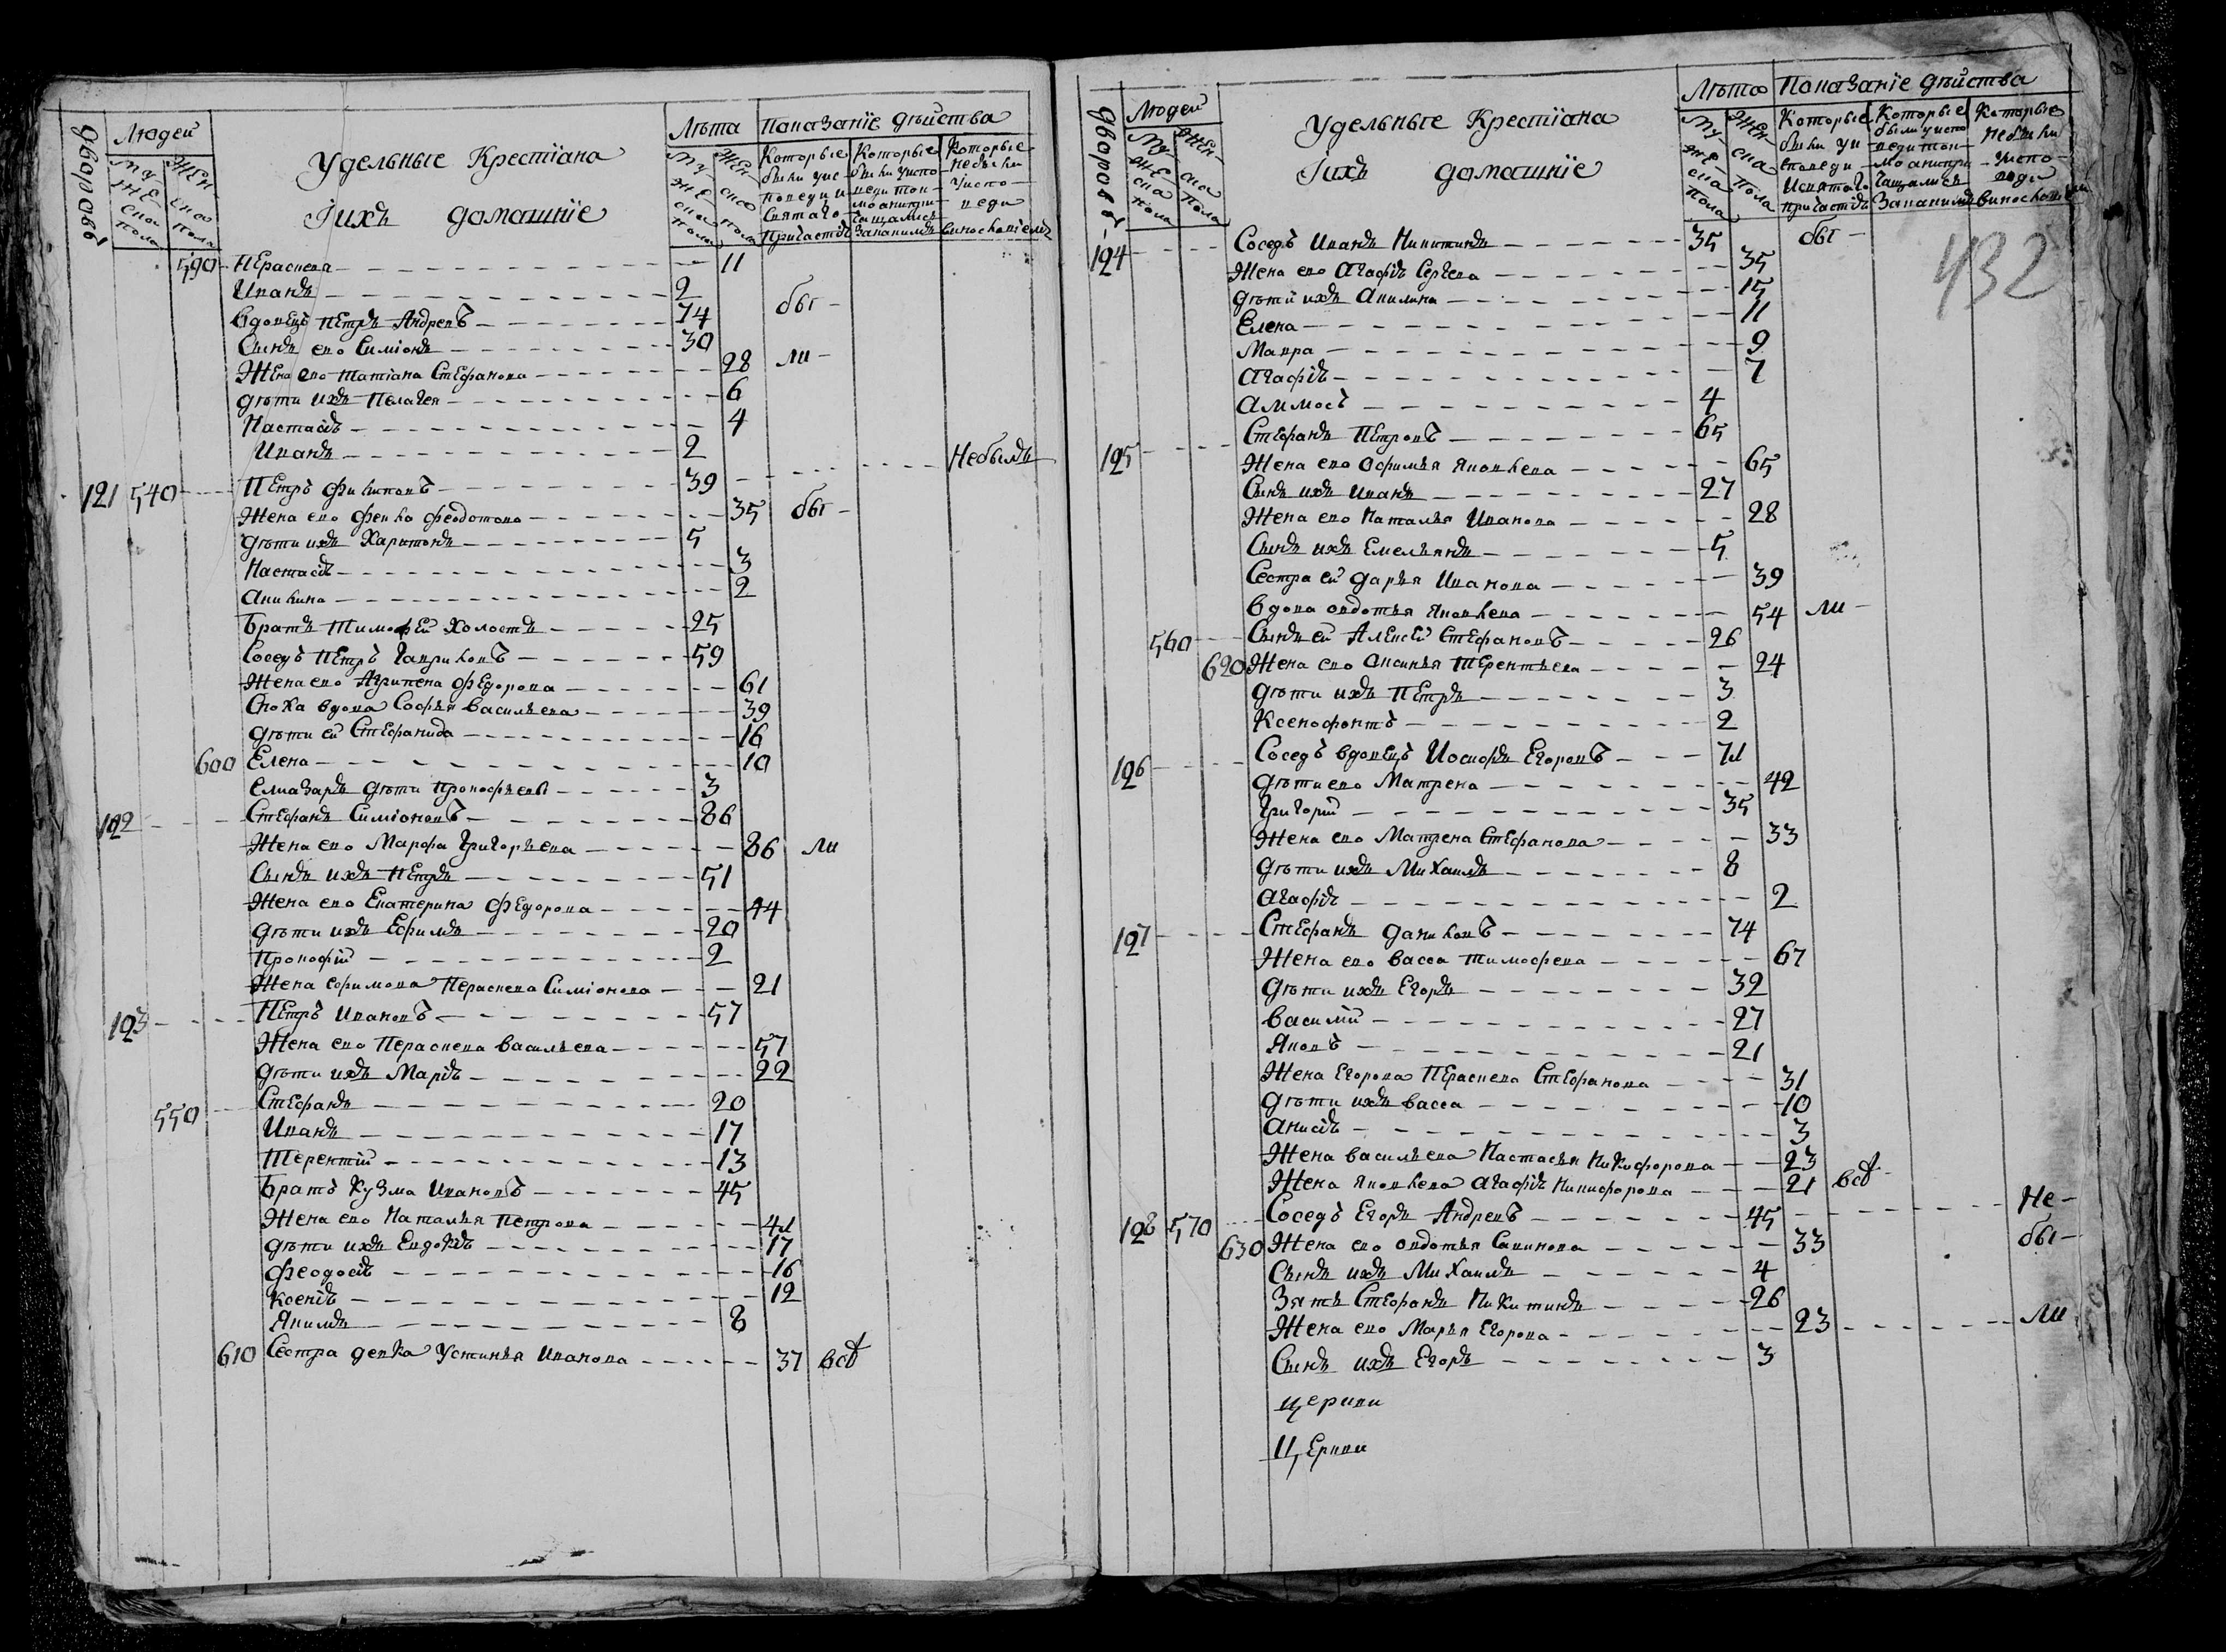 дворовъ
Людей
Мужеска пола
Женска пола
Удельные Крестiана
Iихъ домашнiе
Лѣта
Мужеска пола
Женска пола
Показанiе дѣйства
Которые были уисповеди и святаго причастiя
Которые были уисповеди токмо анипричащались
Которые небыли уисповеди
590 Пераскева 11
Иванъ 2
Вдовецъ Петръ Андреевъ 74 бы-
Сынъ ево Симiонъ 30
Жена ево татiана Стефанова 28 ли-
дѣти ихъ Пелагея 6
Настасiя 4
Иванъ 2
121 540 Петръ Филиповъ 39 Небылъ
Жена ево Фекла Феодотова 35 бы-
дѣти ихъ Харитонъ 5
Настасiя 3
Акилина 2
Братъ Тимофей Холостъ 25
Соседъ Петръ Гавриловъ 59
Жена ево Агрипена Федорова 61
Сноха вдова Софья васильева 39
дѣти ей Стефанида 16
600 Елена 10
Елиазаръ дѣти прокофьевы 3
122 Стефанъ Симiоновъ 86
Жена ево Марфа Григорьева 86 ли
Сынъ ихъ Петръ 51
Жена ево Екатерина Федорова 44
дѣти ихъ Ефимъ 20
Прокофiй 2
Жена Ефимова Пераскева Симiонова 21
123 Петръ Ивановъ 57
Жена ево Пераскева васильева 57
дѣти ихъ Марiя 22
550 Стефанъ 20
Иванъ 17
Терентiй 13
Братъ Кузма Ивановъ 45
Жена ево Наталья Петрова 41
дѣти ихъ Евдокiя 17
Феодосiя 16
Ксенiя 12
Якимъ 8
610 Сестра девка Устинья Иванова 37 всѣ
дворовъ
Людей
Мужеска пола
Женска пола
Удельные Крестiана
Iихъ домашнiе
Лѣта
Мужеска пола
Женска пола
Показанiе дѣйства
Которые были уисповеди и святаго причастiя
Которые были уисповеди токмо анипричащались
Которые небыли уисповеди
432
124 Соседъ Иванъ Никитинъ 35 бы-
Жена ево Агафiя Сергеева 35
дѣти ихъ Акилина 15
Елена 11
Мавра 9
Агафiя 7
Аммосъ 4
125 Стефанъ Петровъ 65
Жена ево Офимья Яковлева 65
Сынъ ихъ Иванъ 27
Жена ево Наталья Иванова 28
Сынъ ихъ Емельянъ 5
Сестра ей дарья Иванова 39
вдова овдотья Яковлева 54 ли-
560 Сынъ ей Алексей Стефановъ 26
620 Жена ево Аксинья Терентьева 24
дѣти ихъ Петръ 3
Ксенофонтъ 2
126 Соседъ вдовецъ Иосифъ Егоровъ 71
дѣти ево Матрена 42
Григорiй 35
Жена ево Матрена Стефанова 33
дѣти ихъ Михаилъ 8
Агафiя 2
127 Стефанъ даниловъ 74
Жена ево васса тимофеева 67
дѣти ихъ Егоръ 32
василiй 27
Яковъ 21
Жена Егорова Пераскева Стефанова 31
дѣти ихъ васса 10
Анисiя 3
Жена васильева Настасья Никифорова 23
Жена Яковлева Агафiя Никифорова 21 всѣ
128 570 Соседъ Егоръ Андреевъ 45 Не-
630 Жена ево овдотья Савинова 33 бы-
Сынъ ихъ Михаилъ 4
Зять Стефанъ Никитинъ 26
Жена ево Марья Егорова 23 ли
Сынъ ихъ Егоръ 3
церкви
Церкви